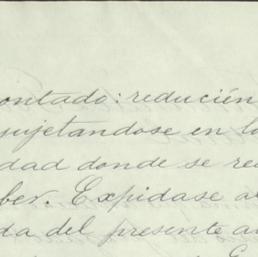 ontado: reducién
sujetandose en lo
dad donde se re
ber. Expidase a
da del presente a